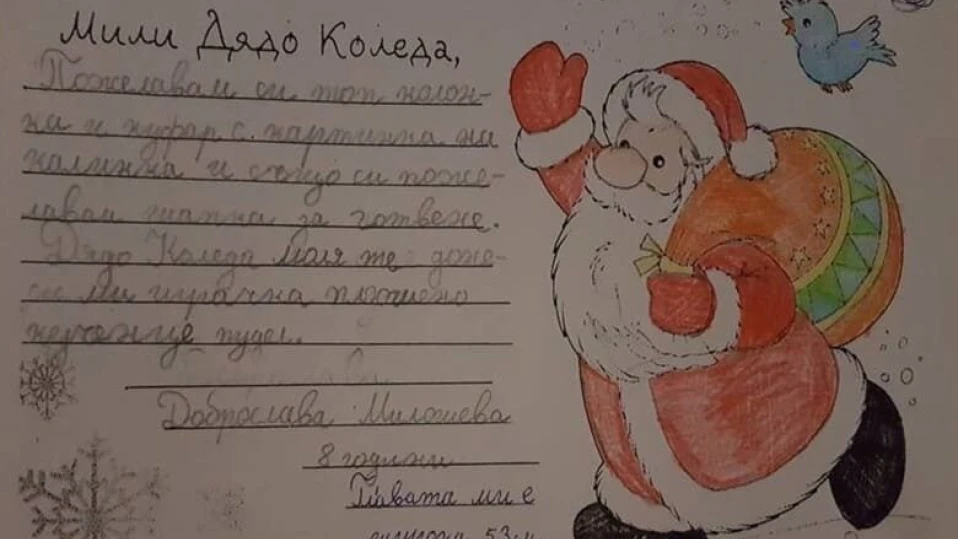 Мили Дядо Коледа,
Пожелавам си топ колон-
ки и куфар с картинка на
калинка и също си поже-
лавам шапка за готвене.
Дядо Коледа моля те доне-
си ми играчка плюшено
кученце пудел.
Доброслава Милошева
8 години
ми е
53